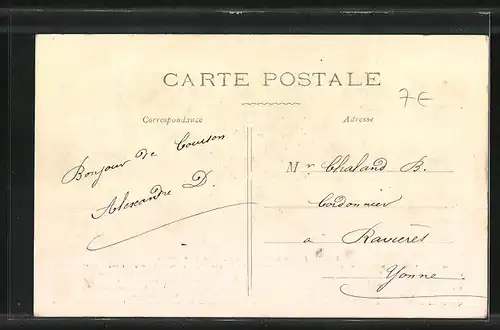 CARTE POSTALE
7€
Correspondance
Adresse
Bonjour de Courson
Alexandre D.
Mr Chaland B.
Cordonnier
à Ravières
Yonne